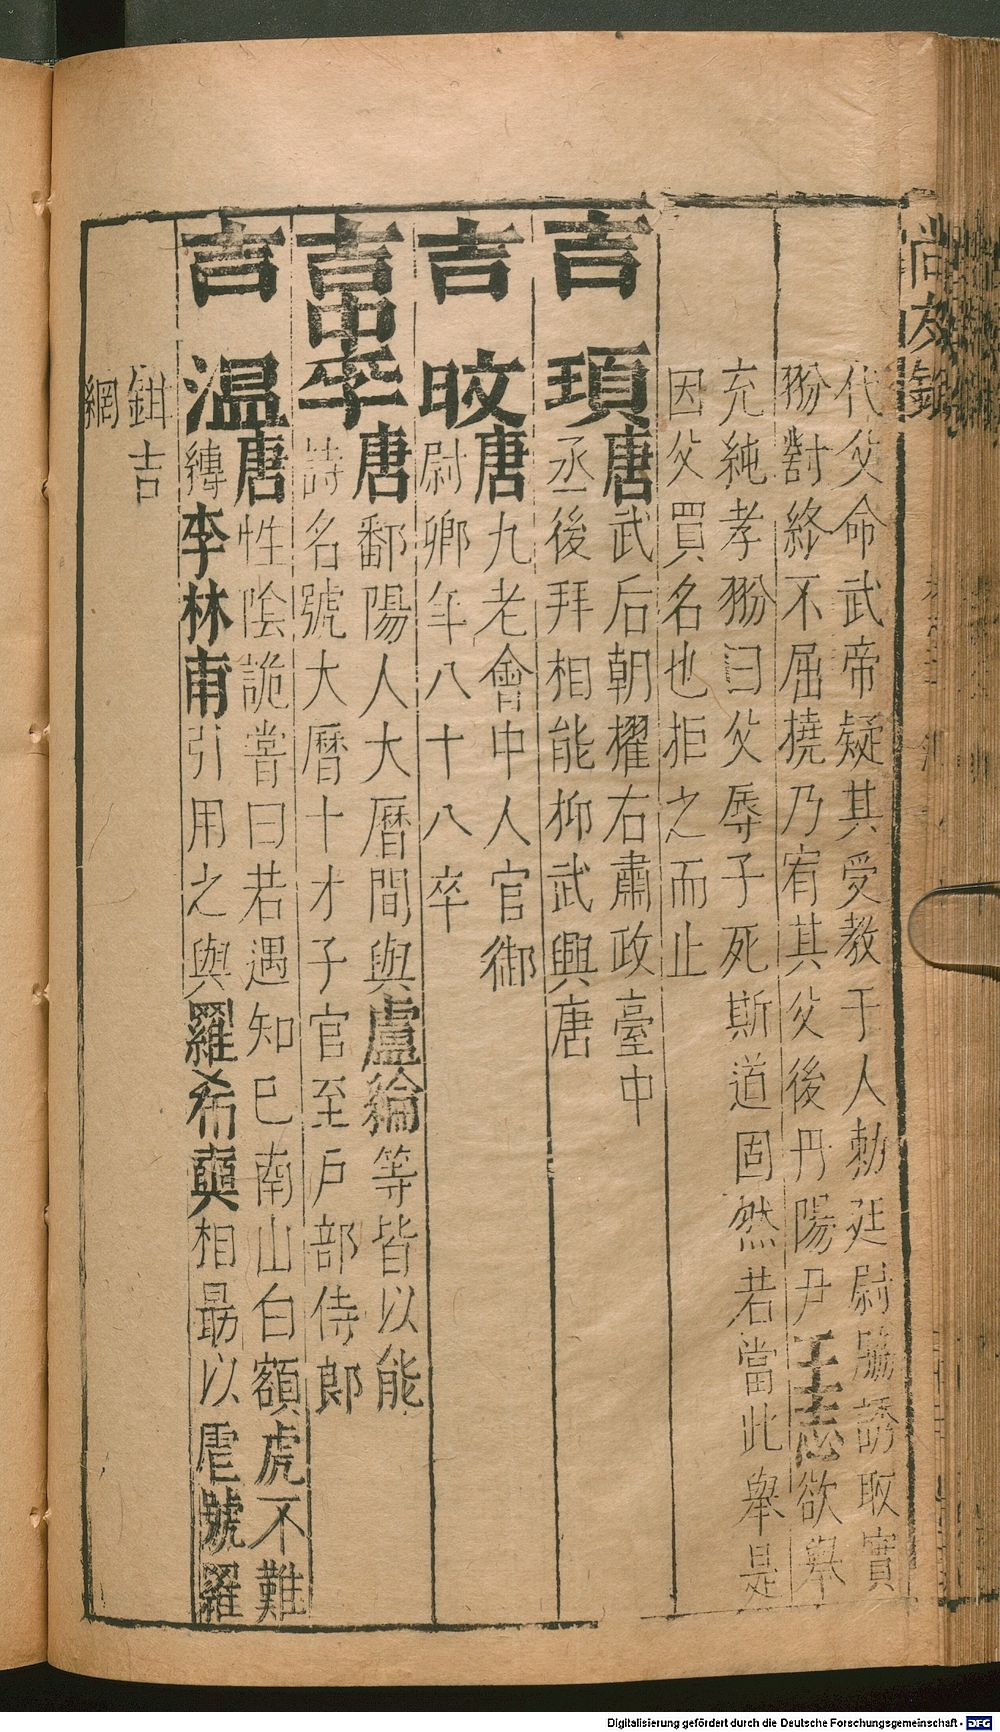 尚友錄
代父命武帝疑其受教于人勅廷尉脇誘取實
翂對終不屈撓乃宥其父後丹陽尹王志欲舉
充純孝翂曰父辱子死斯道固然若當此舉是
因父買名也拒之而止
吉頊
唐武后朝擢右肅政臺中
丞後拜相能抑武興唐
吉旼
唐九老會中人官御
尉卿年八十八卒
吉中孚
唐鄱陽人大曆間與盧綸等皆以能
詩名號大曆十才子官至戶部侍郎
吉溫
唐性陰詭嘗曰若遇知已南山白額虎不難
縳李林甫引用之與羅希奭相最以虐號羅
鉗吉
網
Digitalisierung gefördert durch die Deutsche Forschungsgemeinschaft - DFG